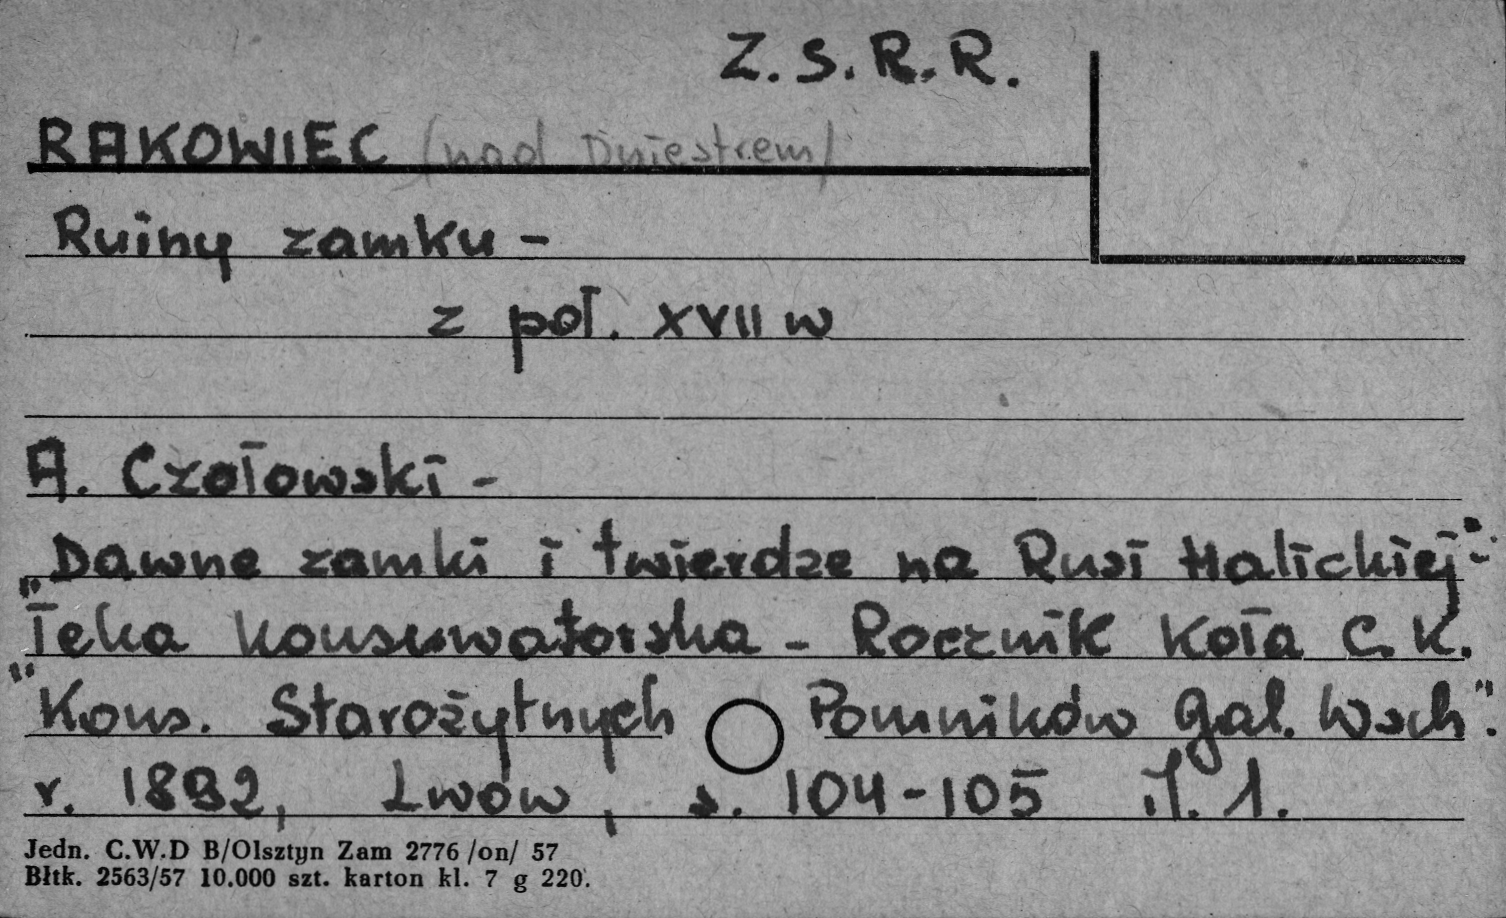 Z.S.R.R.
RAKOWIEC (nad Dniestrem)
Ruiny zamku -
z poł. XVII w
A. Czołowski -
„Dawne zamki i twierdze na Rusi Halickiej" -
„Teka konserwatorska - Rocznik Koła C.K.
Kons. Starożytnych Pomników Gal. Wsch".
r. 1892, Lwów, s. 104-105 il. 1.
Jedn. C.W.D B/Olsztyn Zam 2776 /on/ 57
Błtk. 2563/57 10.000 szt. karton kl. 7 g 220.